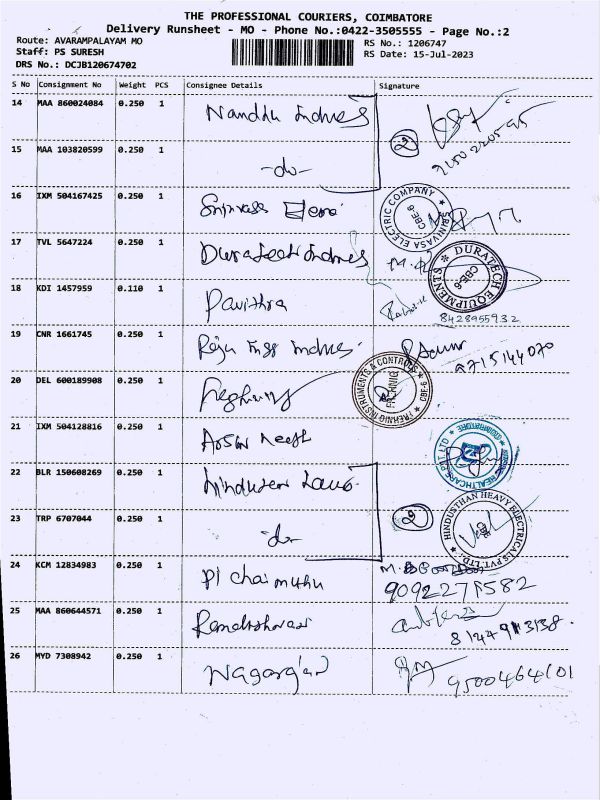 THE PROFESSIONAL COURIERS, COIMBATORE
Delivery Runsheet - MO - Phone No.:0422-3505555 - Page No.:2
Route: AVARAMPALAYAM MO
RS No.: 1206747
Staff: PS SURESH
RS Date: 15-Jul-2023
DRS No.: DCJB120674702
S No Consignment No Weight PCS Consignee Details Signature
14 MAA 860024084 0.250 1 Nandhu Indres
2
15 MAA 103820599 0.250 1 -do-
16 IXM 504167425 0.250 1 Srinivasa
SRINIVASA ELECTRIC COMPANY * CBE-6
17 TVL 5647224 0.250 1 Duratech Indres
DURATECH EQUIPMENTS * CBE-6
18 KDI 1457959 0.110 1 Pavithra
8428955932
19 CNR 1661745 0.250 1 Raju Engg Indres
9715144070
20 DEL 600189908 0.250 1
FREHNIG INSTRUMENTS & CONTROLS * CBE-6
FREHNIG
21 IXM 504128816 0.250 1
HEALTHCARE PVT LTD * COIMBATORE
22 BLR 150608269 0.250 1
2
23 TRP 6707044 0.250 1 -do-
HINDUSTHAN HEAVY ELECTRICALS PVT. LTD.
CBE
24 KCM 12834983 0.250 1 Pichaimuthu
9092271582
25 MAA 860644571 0.250 1
26 MYD 7308942 0.250 1 Nagarajan
9500464101